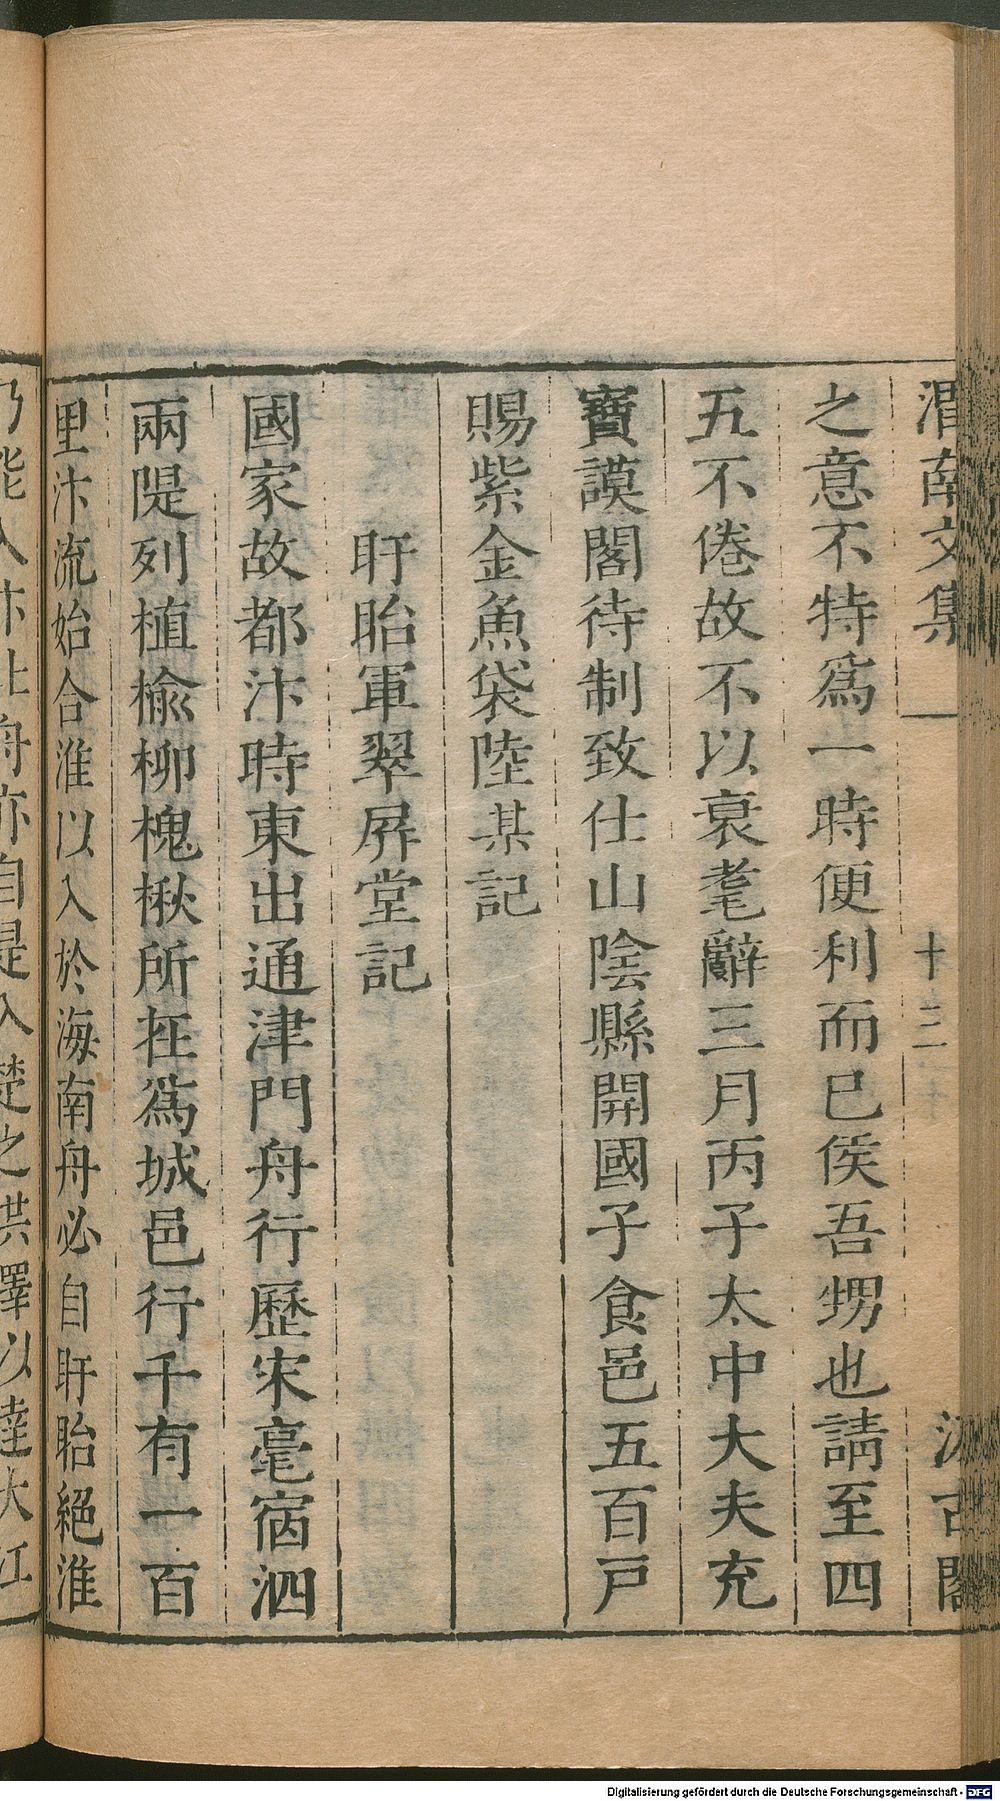 渭南文集
十三
汲古閣
之意不特爲一時便利而已侯吾甥也請至四
五不倦故不以衰耄辭三月丙子太中大夫充
寶謨閣待制致仕山陰縣開國子食邑五百戶
賜紫金魚袋陸某記
盱眙軍翠屛堂記
國家故都汴時東出通津門舟行歷宋亳宿泗
兩隄列植榆柳槐楸所在爲城邑行千有一百
里汴流始合淮以入於海南舟必自盱眙絕淮
乃能入汴北舟亦自是入楚之洪澤以達大江
Digitalisierung gefördert durch die Deutsche Forschungsgemeinschaft - DFG